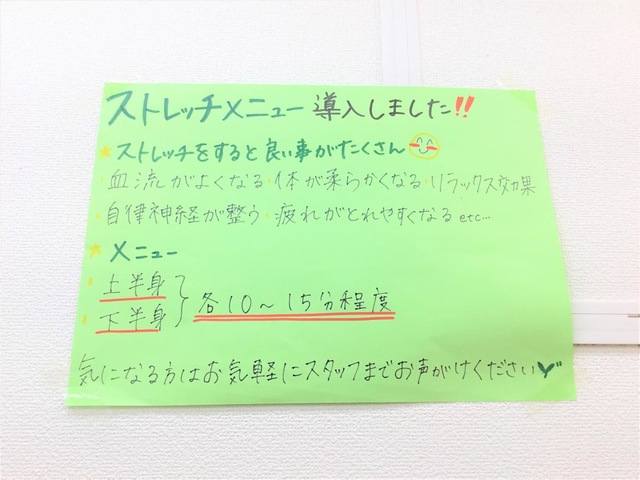 ストレッチメニュー導入しました!!
★ストレッチをすると良い事がたくさん
・血流がよくなる・体が柔らかくなる・リラックス効果
・自律神経が整う・疲れがとれやすくなるetc...
★メニュー
・上半身
・下半身 } 各10～15分程度
気になる方はお気軽にスタッフまでお声がけください